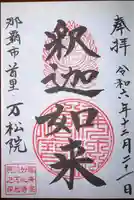 奉拝
令和六年十二月二十一日
釈迦如来
那覇市首里
万松院